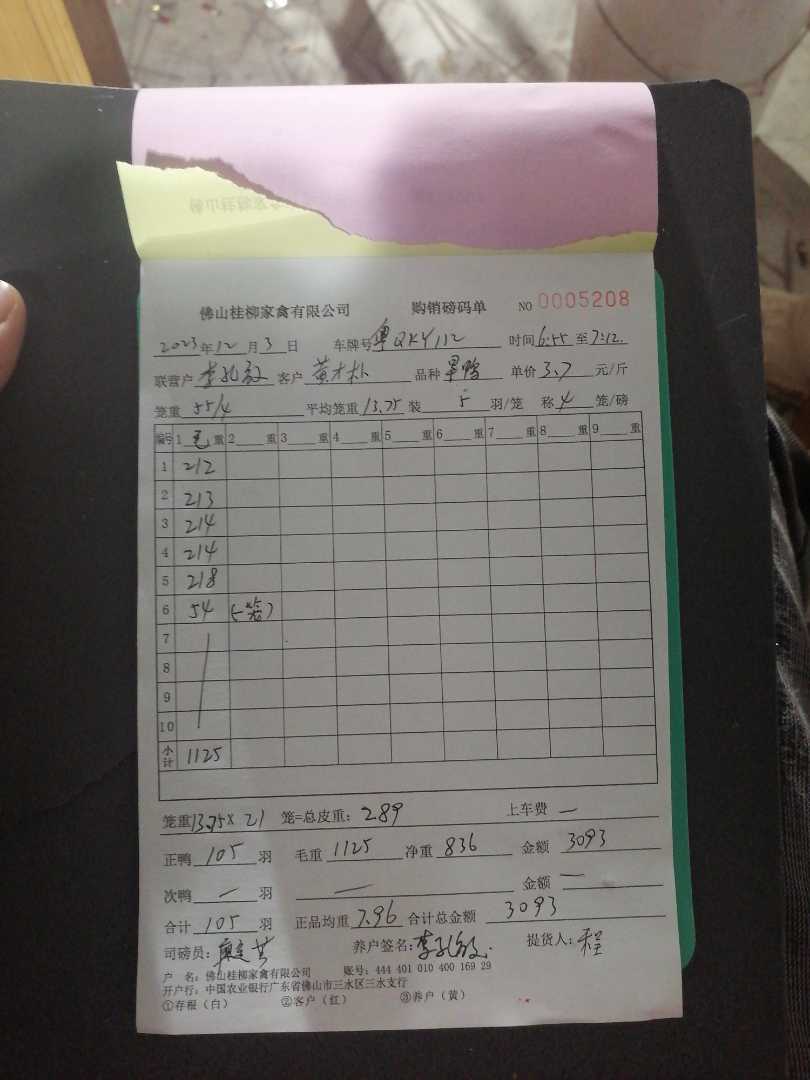 佛山桂柳家禽有限公司 购销磅码单 NO 0005208
2023年12月3日 车牌号粤QKY112 时间6:55至7:12.
联营户 客户 黄才林 品种 旱鸭 单价3.7元/斤
笼重 55/4 平均笼重13.75装 5 羽/笼 称4笼/磅
编号 1毛重 2重 3重 4重 5重 6重 7重 8重 9重
1 212
2 213
3 214
4 214
5 218
6 54 (一笼)
7
8
9
10
小计 1125
笼重13.75×21笼=总皮重: 289 上车费 —
正鸭105羽 毛重1125净重836 金额3093
次鸭—羽 — 金额—
合计105羽 正品均重7.96合计总金额3093
司磅员: 养户签名: 提货人:
户 名: 佛山桂柳家禽有限公司 账号: 444 401 010 400 169 29
开户行: 中国农业银行广东省佛山市三水区三水支行
①存根(白) ②客户(红) ③养户(黄)